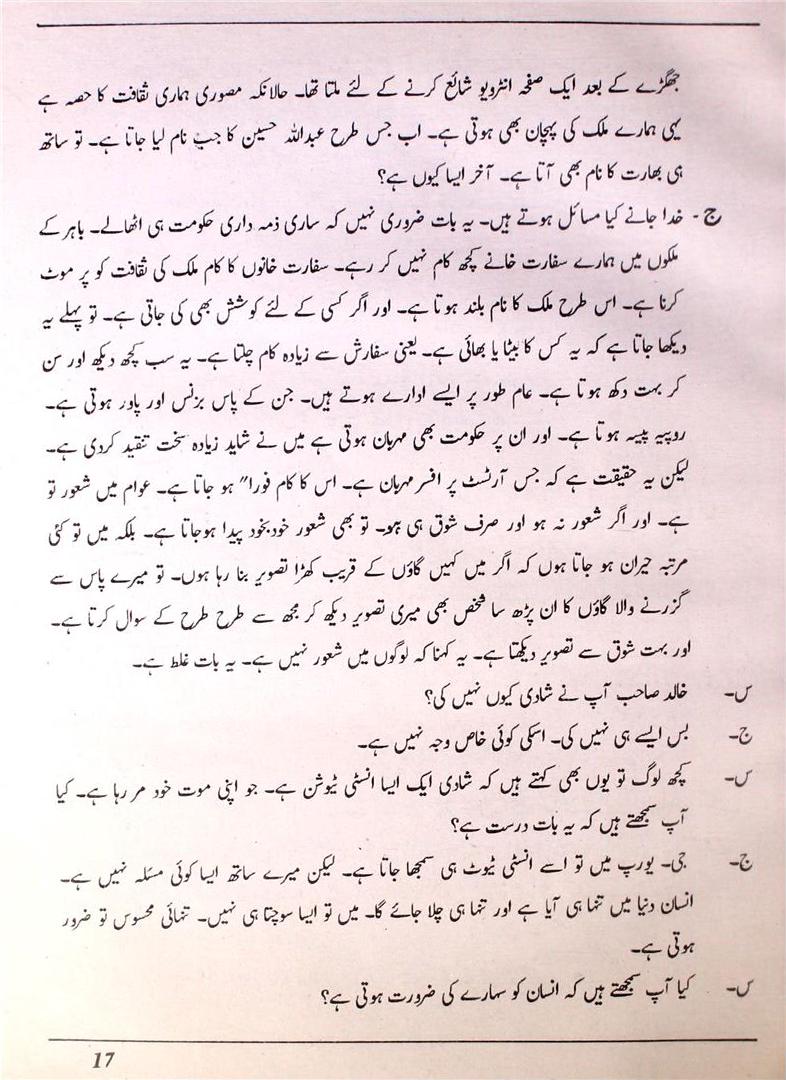 جھگڑے کے بعد ایک صفحہ انٹرویو شائع کرنے کے لئے ملتا تھا۔ حالانکہ مصوری ہماری ثقافت کا حصہ ہے
یہی ہمارے ملک کی پہچان بھی ہوتی ہے۔ اب جس طرح عبداللہ حسین کا جب نام لیا جاتا ہے۔ تو ساتھ
ہی بھارت کا نام بھی آتا ہے۔ آخر ایسا کیوں ہے؟
ج - خدا جانے کیا مسائل ہوتے ہیں۔ یہ بات ضروری نہیں کہ ساری ذمہ داری حکومت ہی اٹھالے۔ باہر کے
ملکوں میں ہمارے سفارت خانے کچھ کام نہیں کر رہے۔ سفارت خانوں کا کام ملک کی ثقافت کو پر موٹ
کرنا ہے۔ اس طرح ملک کا نام بلند ہوتا ہے۔ اور اگر کسی کے لئے کوشش بھی کی جاتی ہے۔ تو پہلے یہ
دیکھا جاتا ہے کہ یہ کس کا بیٹا یا بھائی ہے۔ یعنی سفارش سے زیادہ کام چلتا ہے۔ یہ سب کچھ دیکھ اور سن
کر بہت دکھ ہوتا ہے۔ عام طور پر ایسے ادارے ہوتے ہیں۔ جن کے پاس بزنس اور پاور ہوتی ہے۔
روپیہ پیسہ ہوتا ہے۔ اور ان پر حکومت بھی مہربان ہوتی ہے میں نے شاید زیادہ سخت تنقید کردی ہے۔
لیکن یہ حقیقت ہے کہ جس آرٹسٹ پر افسر مہربان ہے۔ اس کا کام فورا" ہو جاتا ہے۔ عوام میں شعور تو
ہے۔ اور اگر شعور نہ ہو اور صرف شوق ہی ہو۔ تو بھی شعور خودبخود پیدا ہوجاتا ہے۔ بلکہ میں تو کئی
مرتبہ حیران ہو جاتا ہوں کہ اگر میں کہیں گاؤں کے قریب کھڑا تصویر بنا رہا ہوں۔ تو میرے پاس سے
گزرنے والا گاؤں کا ان پڑھ سا شخص بھی میری تصویر دیکھ کر مجھ سے طرح طرح کے سوال کرتا ہے۔
اور بہت شوق سے تصویر دیکھتا ہے۔ یہ کہنا کہ لوگوں میں شعور نہیں ہے۔ یہ بات غلط ہے۔
س۔ خالد صاحب آپ نے شادی کیوں نہیں کی؟
ج۔ بس ایسے ہی نہیں کی۔ اسکی کوئی خاص وجہ نہیں ہے۔
س۔ کچھ لوگ تو یوں بھی کہتے ہیں کہ شادی ایک ایسا انسٹی ٹیوشن ہے۔ جو اپنی موت خود مر رہا ہے۔ کیا
آپ سمجھتے ہیں کہ یہ بات درست ہے؟
ج۔ جی۔ یورپ میں تو اسے انسٹی ٹیوٹ ہی سمجھا جاتا ہے۔ لیکن میرے ساتھ ایسا کوئی مسئلہ نہیں ہے۔
انسان دنیا میں تنہا ہی آیا ہے اور تنہا ہی چلا جائے گا۔ میں تو ایسا سوچتا ہی نہیں۔ تنہائی محسوس تو ضرور
ہوتی ہے۔
س۔ کیا آپ سمجھتے ہیں کہ انسان کو سہارے کی ضرورت ہوتی ہے؟
17